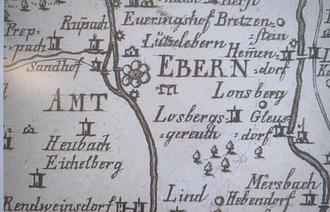 Rupach
Eueringshof
Bretzen-
stein
Prep-
pach
Lützelebern
Hemen-
dorf
Sandhof
EBERN
Lonsberg
AMT
Losbergs
gereuth
Gleus-
dorf
Heubach
Eichelberg
Mersbach
Lind
Hebendorf
Rendweinsdorf